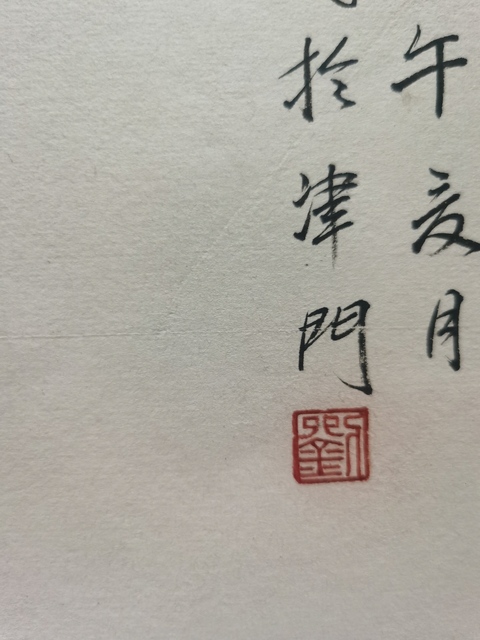 午夏月
於津門
劉